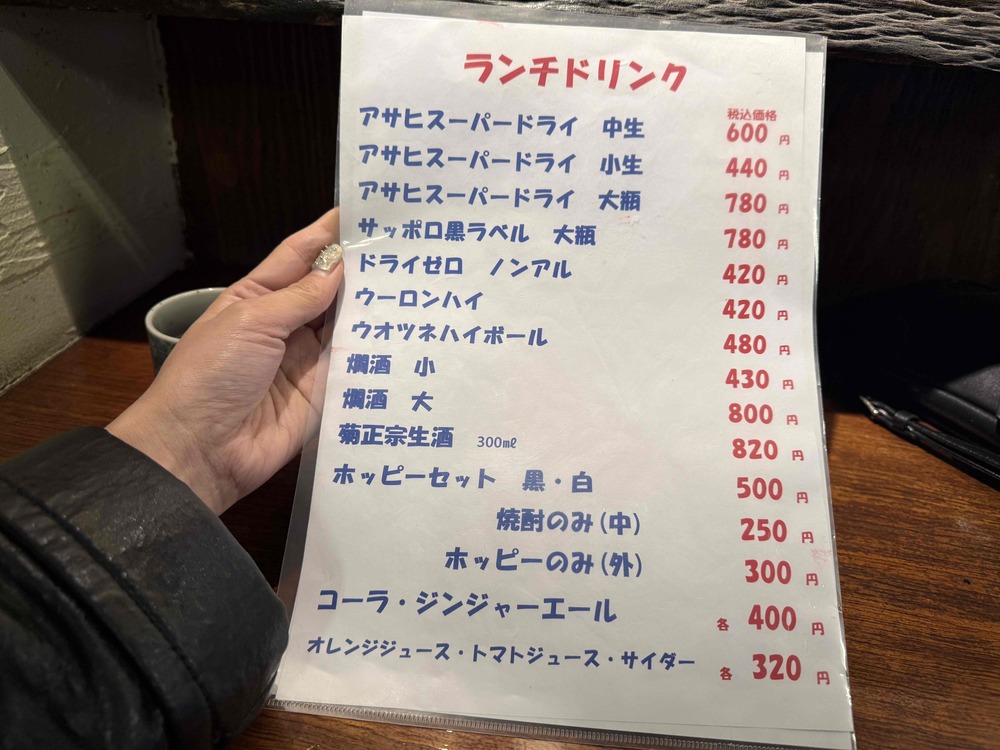 ランチドリンク
税込価格
アサヒスーパードライ 中生 600 円
アサヒスーパードライ 小生 440 円
アサヒスーパードライ 大瓶 780 円
サッポロ黒ラベル 大瓶 780 円
ドライゼロ ノンアル 420 円
ウーロンハイ 420 円
ウオツネハイボール 480 円
燗酒 小 430 円
燗酒 大 800 円
菊正宗生酒 300㎖ 820 円
ホッピーセット 黒・白 500 円
焼酎のみ(中) 250 円
ホッピーのみ(外) 300 円
コーラ・ジンジャーエール 各 400 円
オレンジジュース・トマトジュース・サイダー 各 320 円